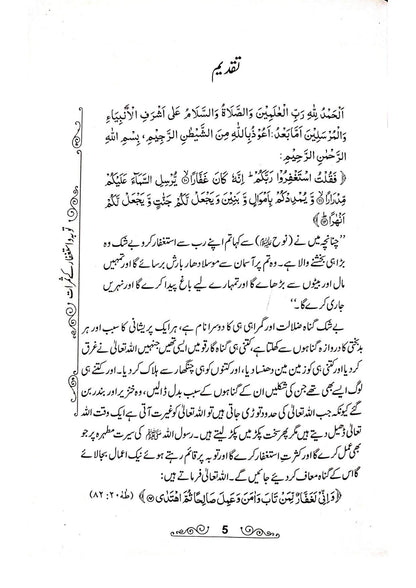 تقدیم
اَلْحَمْدُ لِلّٰهِ رَبِّ الْعٰلَمِيْنَ وَالصَّلَاةُ وَالسَّلَامُ عَلٰى اَشْرَفِ الْأَنْبِيَآءِ
وَالْمُرْسَلِيْنَ اَمَّابَعْدُ: اَعُوْذُ بِاللّٰهِ مِنَ الشَّيْطٰنِ الرَّجِيْمِ، بِسْمِ اللّٰهِ
الرَّحْمٰنِ الرَّحِيْمِ:
﴿فَقُلْتُ اسْتَغْفِرُوْا رَبَّكُمْ ؕ اِنَّهٗ كَانَ غَفَّارًا۝ يُّرْسِلِ السَّمَآءَ عَلَيْكُمْ
مِّدْرَارًا۝ وَّ يُمْدِدْكُمْ بِاَمْوَالٍ وَّ بَنِيْنَ وَ يَجْعَلْ لَّكُمْ جَنّٰتٍ وَّ يَجْعَلْ لَّكُمْ
اَنْهٰرًا۝﴾
”چنانچہ میں نے (نوح علیہ السلام) سے کہا تم اپنے رب سے استغفار کرو بے شک وہ
بڑا ہی بخشنے والا ہے۔ وہ تم پر آسمان سے موسلا دھار بارش برسائے گا اور تمہیں
مال اور بیٹوں سے بڑھائے گا اور تمہارے لیے باغ پیدا کرے گا اور نہریں
جاری کرے گا۔“
بے شک گناہ ضلالت اور گمراہی ہی کا دوسرا نام ہے، ہر ایک پریشانی کا سبب اور ہر
بدبختی کا دروازہ گناہوں سے کھلتا ہے، کتنی ہی گناہ گار قومیں ایسی تھیں جنہیں اللہ تعالیٰ نے غرق
کر دیا اور کتنی ہی کو زمین میں دھنسا دیا، اور کتنوں کو ہی چنگھاڑ سے ہلاک کر دیا۔ اور کتنے ہی
لوگ ایسے بھی تھے جن کی شکلیں ان کے گناہوں کے سبب بدل ڈالیں، وہ خنزیر اور بندر بن
گئے کیونکہ جب اللہ تعالیٰ کی حدود توڑی جاتی ہیں تو اللہ تعالیٰ کو غیرت آتی ہے ایک وقت اللہ
تعالیٰ ڈھیل دیتے ہیں مگر پھر سخت پکڑ میں پکڑ لیتے ہیں۔ رسول اللہ ﷺ کی سیرت مطہرہ پر جو
بھی عمل کرے گا اور کثرتِ استغفار کرے گا اور توبہ پر قائم رہتے ہوئے نیک اعمال بجا لائے
گا اس کے گناہ معاف کر دیئے جائیں گے۔ اللہ تعالیٰ فرماتے ہیں:
﴿وَاِنِّيْ لَغَفَّارٌ لِّمَنْ تَابَ وَاٰمَنَ وَعَمِلَ صَالِحًا ثُمَّ اهْتَدٰى۝﴾ (طٰهٰ ۲۰: ۸۲)
توبہ و استغفار کے ثمرات
5